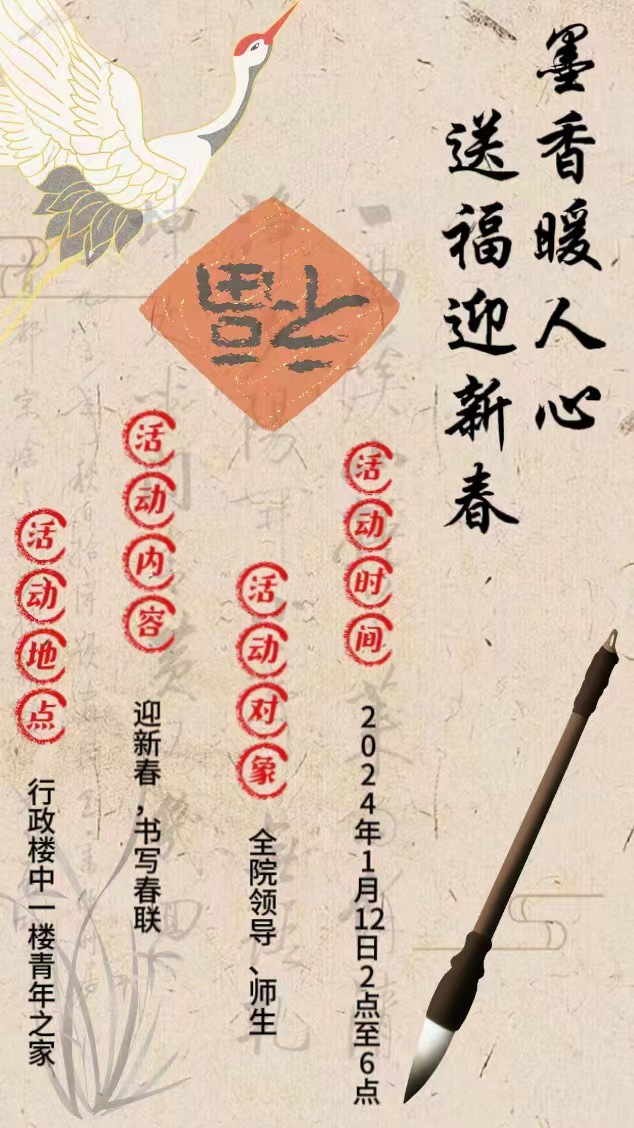 墨香暖人心
送福迎新春
福
活动时间
2024年1月12日2点至6点
活动对象
全院领导、师生
活动内容
迎新春,书写春联
活动地点
行政楼中一楼青年之家